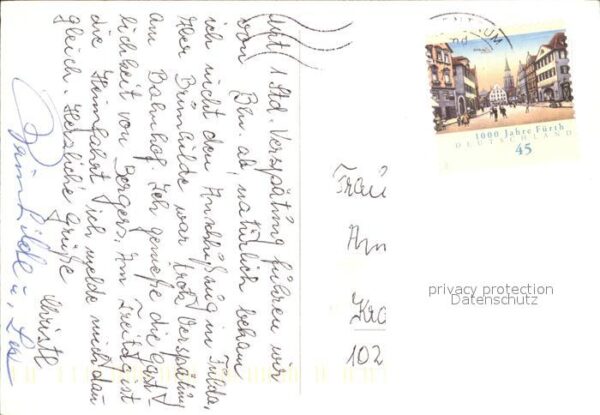 Mit 1 Std. Verspätung führen wir
von Bln. ab, natürlich bekam
ich nicht den Anschlußzug in Fulda,
Aber Brünhilde war trotz Verspätung
am Bahnhof. Ich genieße die Gast-
lichkeit von Bergers. Am Freitag ist
die Heimfahrt, ich melde mich dann
gleich. Herzliche Grüße
Christl
Brünhilde u.
1000 Jahre Fürth
DEUTSCHLAND
45
Frau
Kro
102
privacy protection
Datenschutz